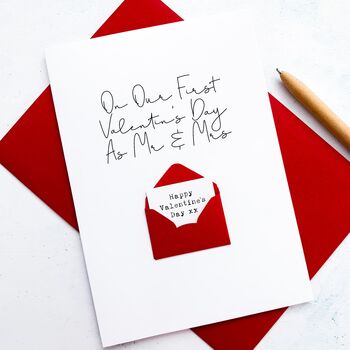 On Our First
Valentin's Day
As Mr & Mrs
Happy
Valentine's
Day xx